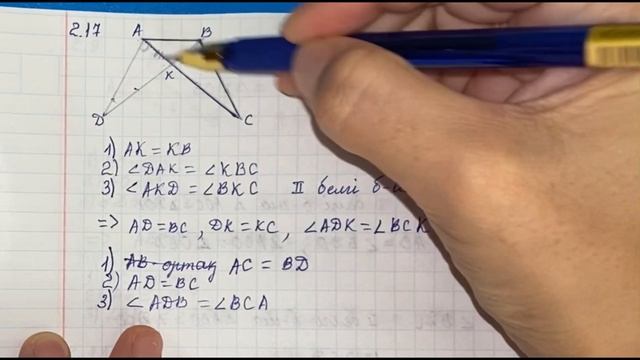 2.17
A B
K
D C
1) AK = KB
2) ∠DAK = ∠KBC
3) ∠AKD = ∠BKC II белгі
=> AD = BC, DK = KC, ∠ADK = ∠BCK
1) AB ортақ AC = BD
2) AD = BC
3) ∠ADB = ∠BCA